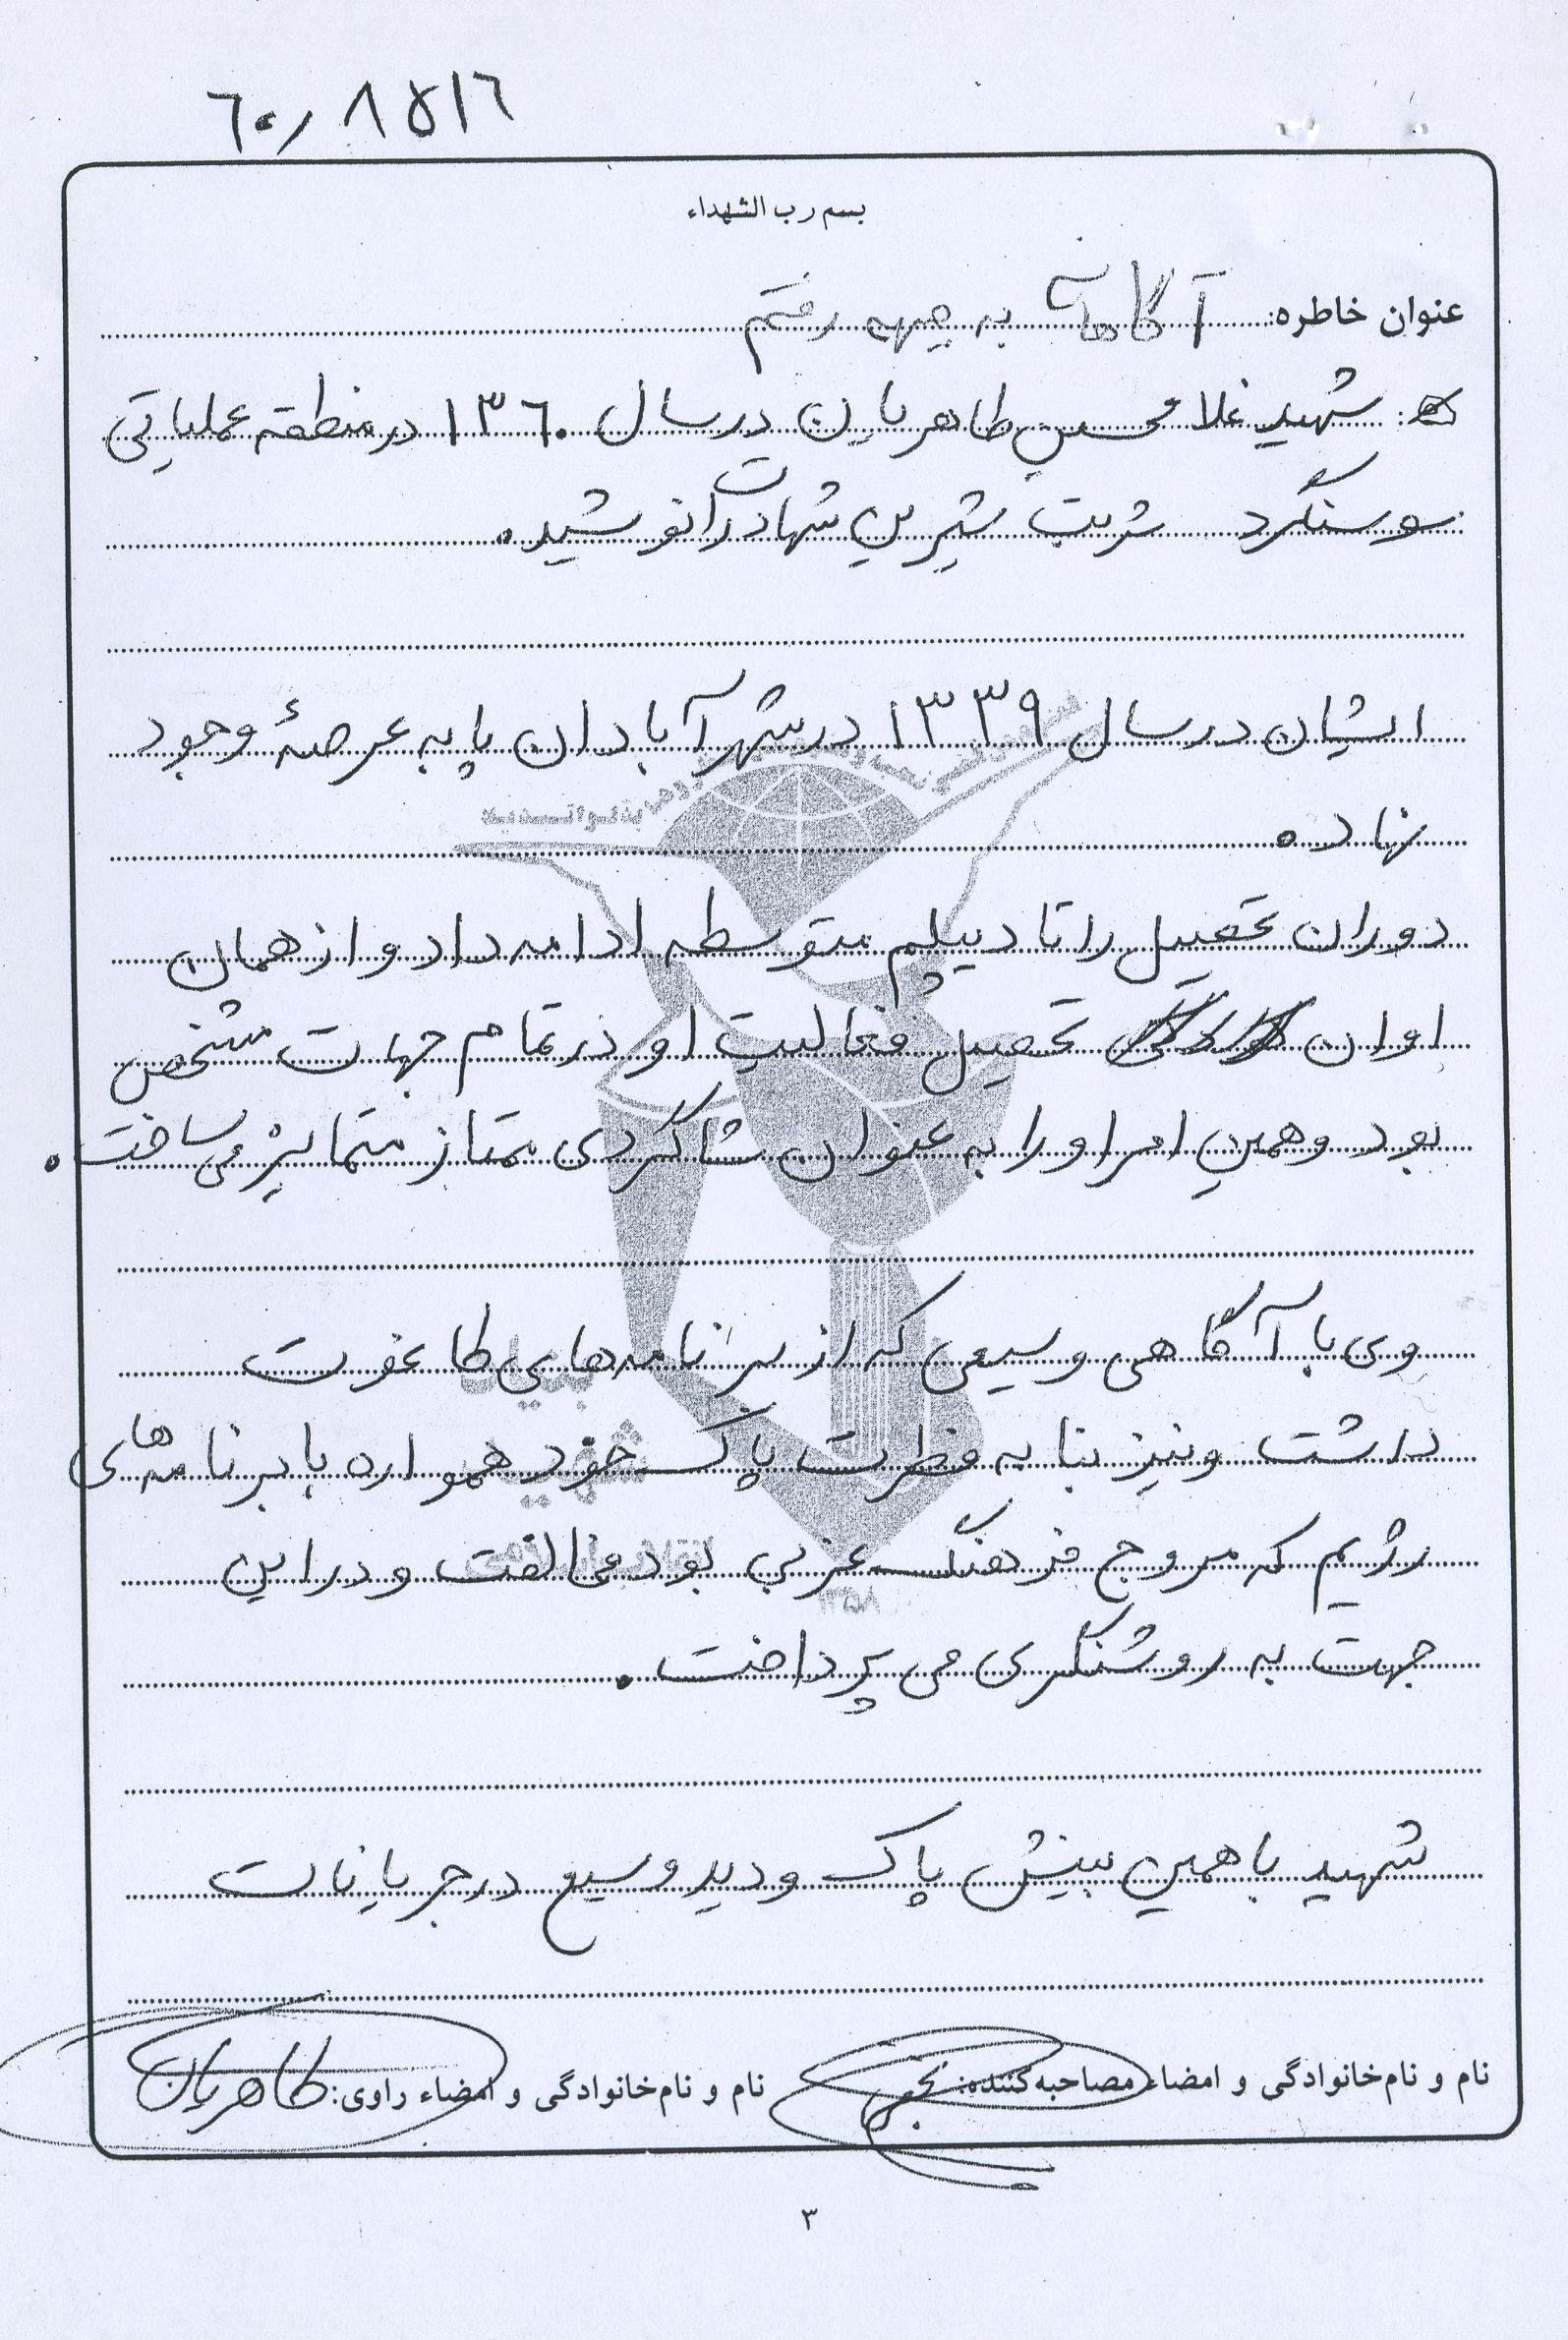 ۶۰٫۸۵۱۶
بسم رب الشهداء
عنوان خاطره: آگاهانه به جبهه رفتم
شهید غلامحسین طاهریان در سال ۱۳۶۰ در منطقه عملیاتی
سوسنگرد شربت شیرین شهادت را نوشید.
ایشان در سال ۱۳۳۹ در شهر آبادان پا به عرصهٔ وجود
نهاد.
دوران تحصیل را تا دیپلم متوسطه ادامه داد و از همان
اوان تحصیل فعالیت او در تمام جهات مشخص
بود و همین امر او را به عنوان شاگردی ممتاز متمایز می ساخت.
وی با آگاهی وسیعی که از برنامه های طاغوت
داشت و نیز بنا به فطرت پاک خود همواره با برنامه های
رژیم که مروج فرهنگ غربی بود مخالفت و در این
جهت به روشنگری می پرداخت.
شهید با همین بینش پاک و دید وسیع در جریانات
نام و نام خانوادگی و امضاء مصاحبه کننده: نام و نام خانوادگی و امضاء راوی: طاهریان
۳